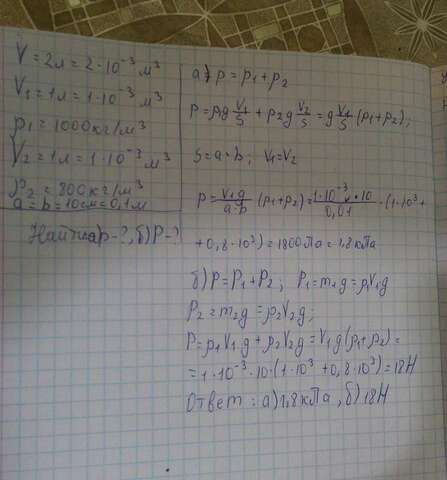 V = 2л = 2·10⁻³ м³
V₁ = 1л = 1·10⁻³ м³
ρ₁ = 1000 кг/м³
V₂ = 1л = 1·10⁻³ м³
ρ₂ = 800 кг/м³
a = b = 10см = 0,1м
Найти: а)p-?, б) P-?
а) p = p₁ + p₂
p = ρ₁g V₁/S + ρ₂g V₂/S = g V₁/S (ρ₁+ρ₂);
S = a·b; V₁=V₂
p = V₁g/a·b (ρ₁+ρ₂) = 1·10⁻³·10/0,01 ·(1·10³+
+0,8·10³) = 1800 Па = 1,8 кПа
б) P = P₁ + P₂; P₁ = m₁g = ρ₁V₁g
P₂ = m₂g = ρ₂V₂g;
P = ρ₁V₁g + ρ₂V₂g = V₁g(ρ₁+ρ₂) =
= 1·10⁻³·10·(1·10³+0,8·10³) = 18Н
Ответ: а) 1,8 кПа, б) 18Н